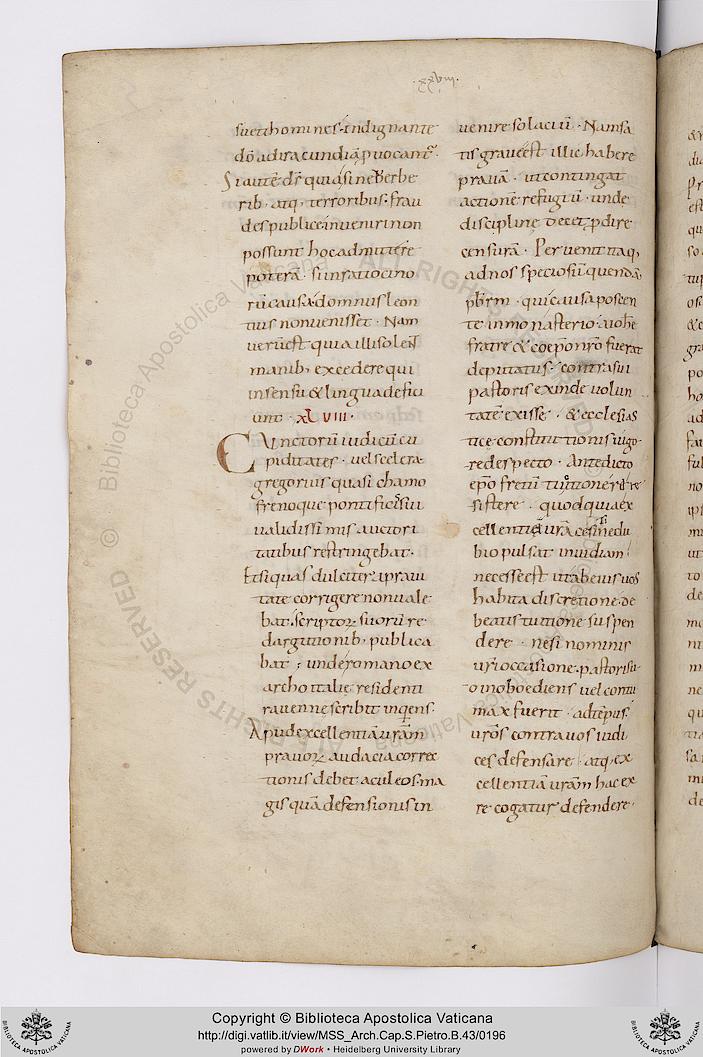 .xxviii.
suetihomines. indignante
dō adiracundiā ꝓuocant᷑.
Si autē dr̄ quia, sine ūerbe
rib; atq; terroribus. frau
des publice inueniri non
possunt hoc admittere
poterā. si in ratiocino
rū causa. domnus leon
tius non uenisset. Nam
uerū est quia illi soleīs
manib; excedere qui
in sensu & lingua defici
unt. xlviii.
Cunctorū iudicū cu
piditates. uel scelera
gregorius quasi chamo
frenoque pontificis sui
ualidissimis auctori
tatibus restringebat.
Et si quas dulciter a praui
tate corrigere non uale
bat. scriptoꝝ suorū re
dargutionib; publica
bat; unde romano ex
archo italię residenti
rauenne scribit inqens.
Apud excellentiā urām
prauoꝝ audacia correc
tionis debet aculeos. ma
gis quā defensionis in
uenire solaciū. Nam sa
tis graue est illic habere
prauā. ut contingat
actionē refugiū. unde
disciplinę decet ꝓdire
censurā. Peruenit itaq;
ad nos speciosū quendā
pb̄rm. qui causa poscen
te in monasterio a ioh̄e
fratre & coep̄o nr̄o fuerat
deputatus. contra sui
pastoris exinde uolun
tatē exisse. & ecclesias
ticę constitutionis uigo
re despecto. Antedicto
ep̄o fretū tuitione resis
sistere. quod quia ex
cellentiā urā
bio pulsat inuidiam
necesse est ut ab eius uos
habita discretione. de
beatis tuitione suspen
dere. ne si nominis
ur̄i occasione. pastori su
o inoboediens uel contu
max fuerit. ad tēpus.
uros contra uos iudi
ces defensare. atq; ex
cellentiā urām hac ex
re cogatur defendere.
Copyright © Biblioteca Apostolica Vaticana
http://digi.vatlib.it/view/MSS_Arch.Cap.S.Pietro.B.43/0196
powered by DWork • Heidelberg University Library